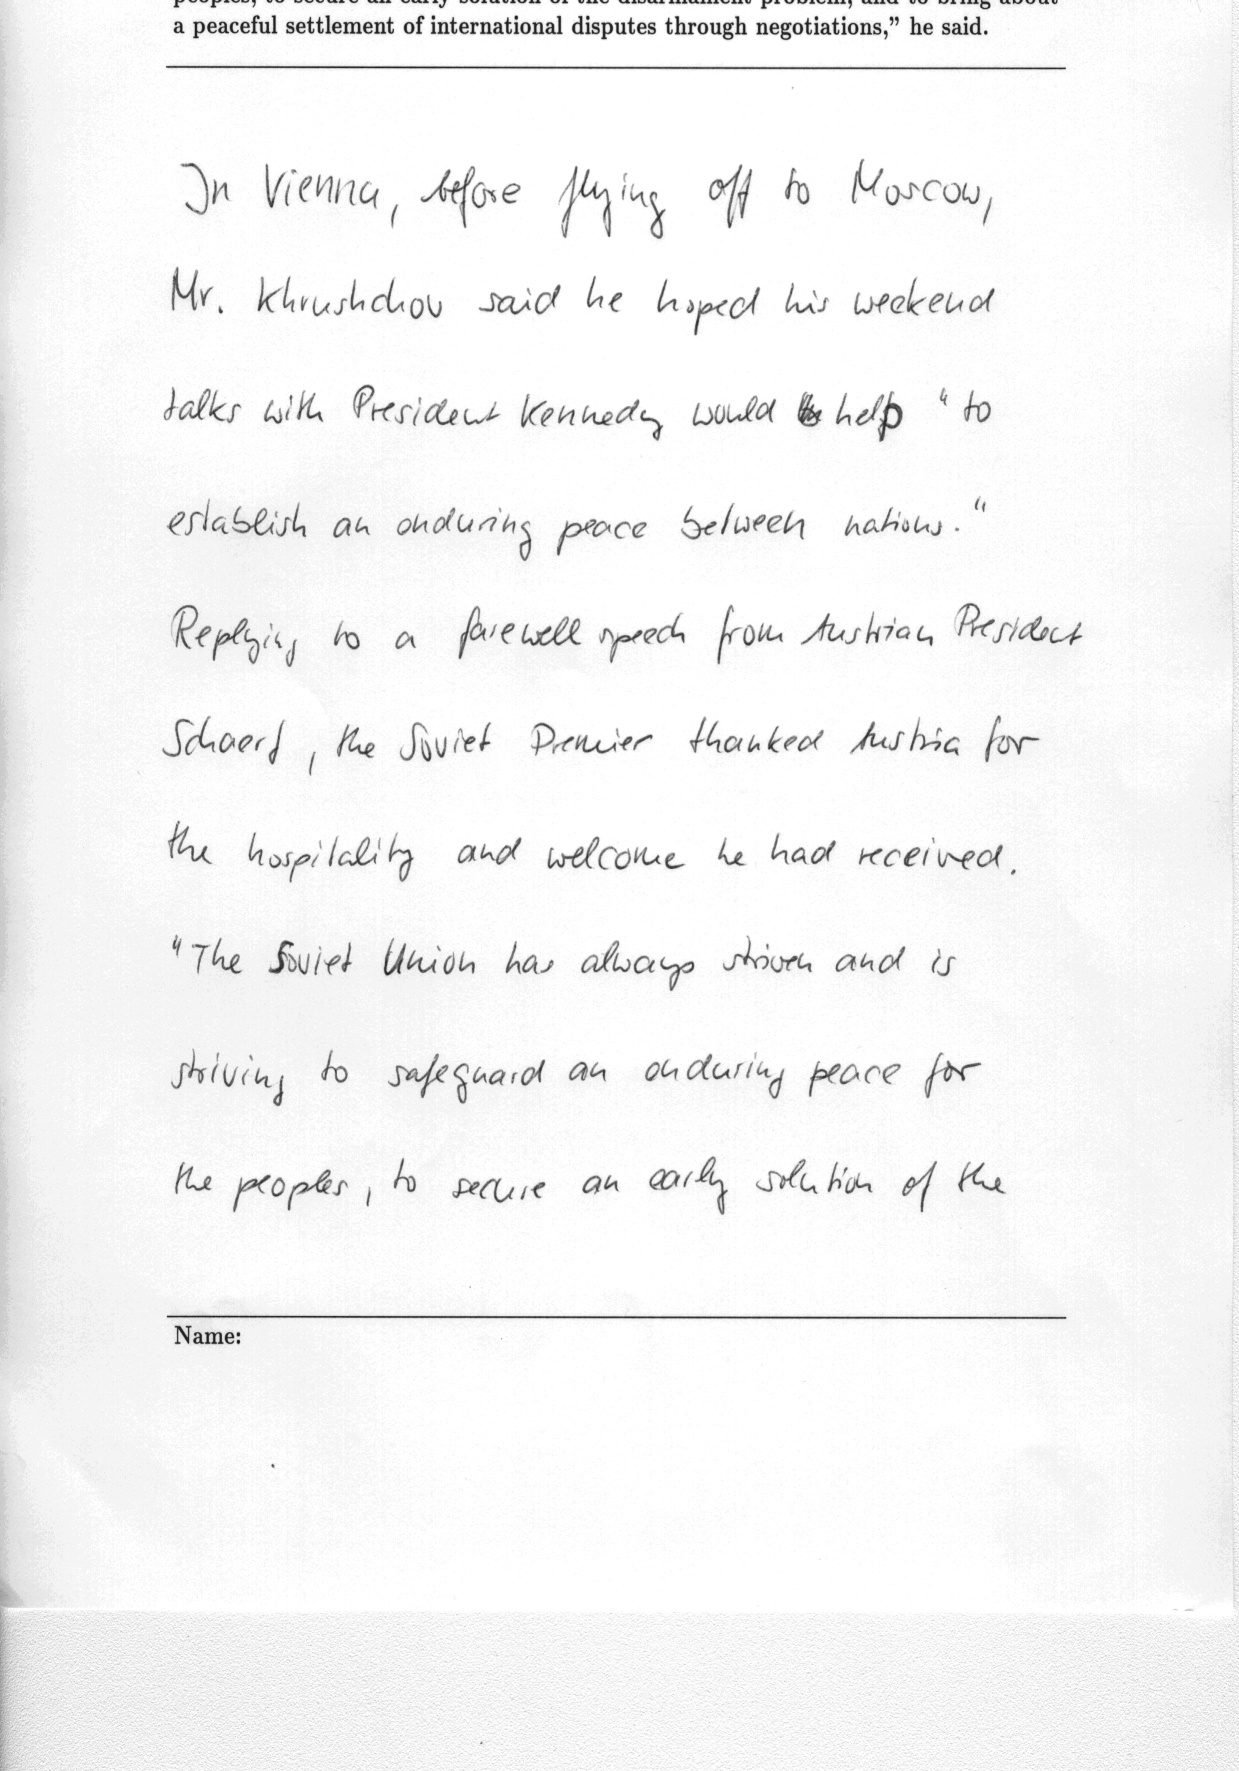 peoples, to secure an early solution of the disarmament problem, and to bring about
a peaceful settlement of international disputes through negotiations,” he said.
In Vienna, before flying off to Moscow,
Mr. Khrushchov said he hoped his weekend
talks with President Kennedy would help "to
establish an enduring peace between nations."
Replying to a farewell speech from Austrian President
Schaerf, the Soviet Premier thanked Austria for
the hospitality and welcome he had received.
"The Soviet Union has always striven and is
striving to safeguard an enduring peace for
the peoples, to secure an early solution of the
Name: